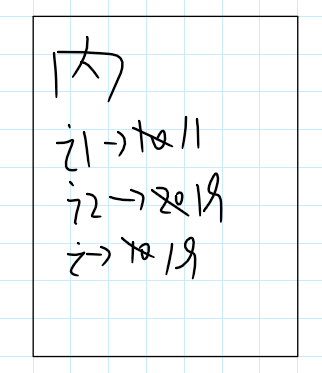 内
i1→10 11
i2→20 19
i→10 19